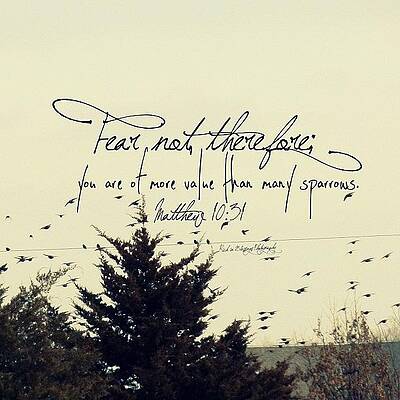 Fear not, therefore;
you are of more value than many sparrows.
Matthew 10:31